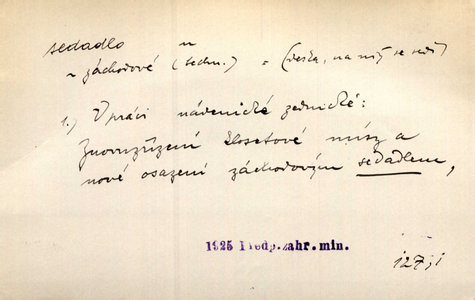 sedadlo n
~ záchodové (techn.) = (deska, na níž se sedí)
1.) V práci nádenické zednické:
Znovuzřízení klosetové mísy a
nové osazení záchodovým sedadlem,
1925 Předp. zahr. min.
127,1